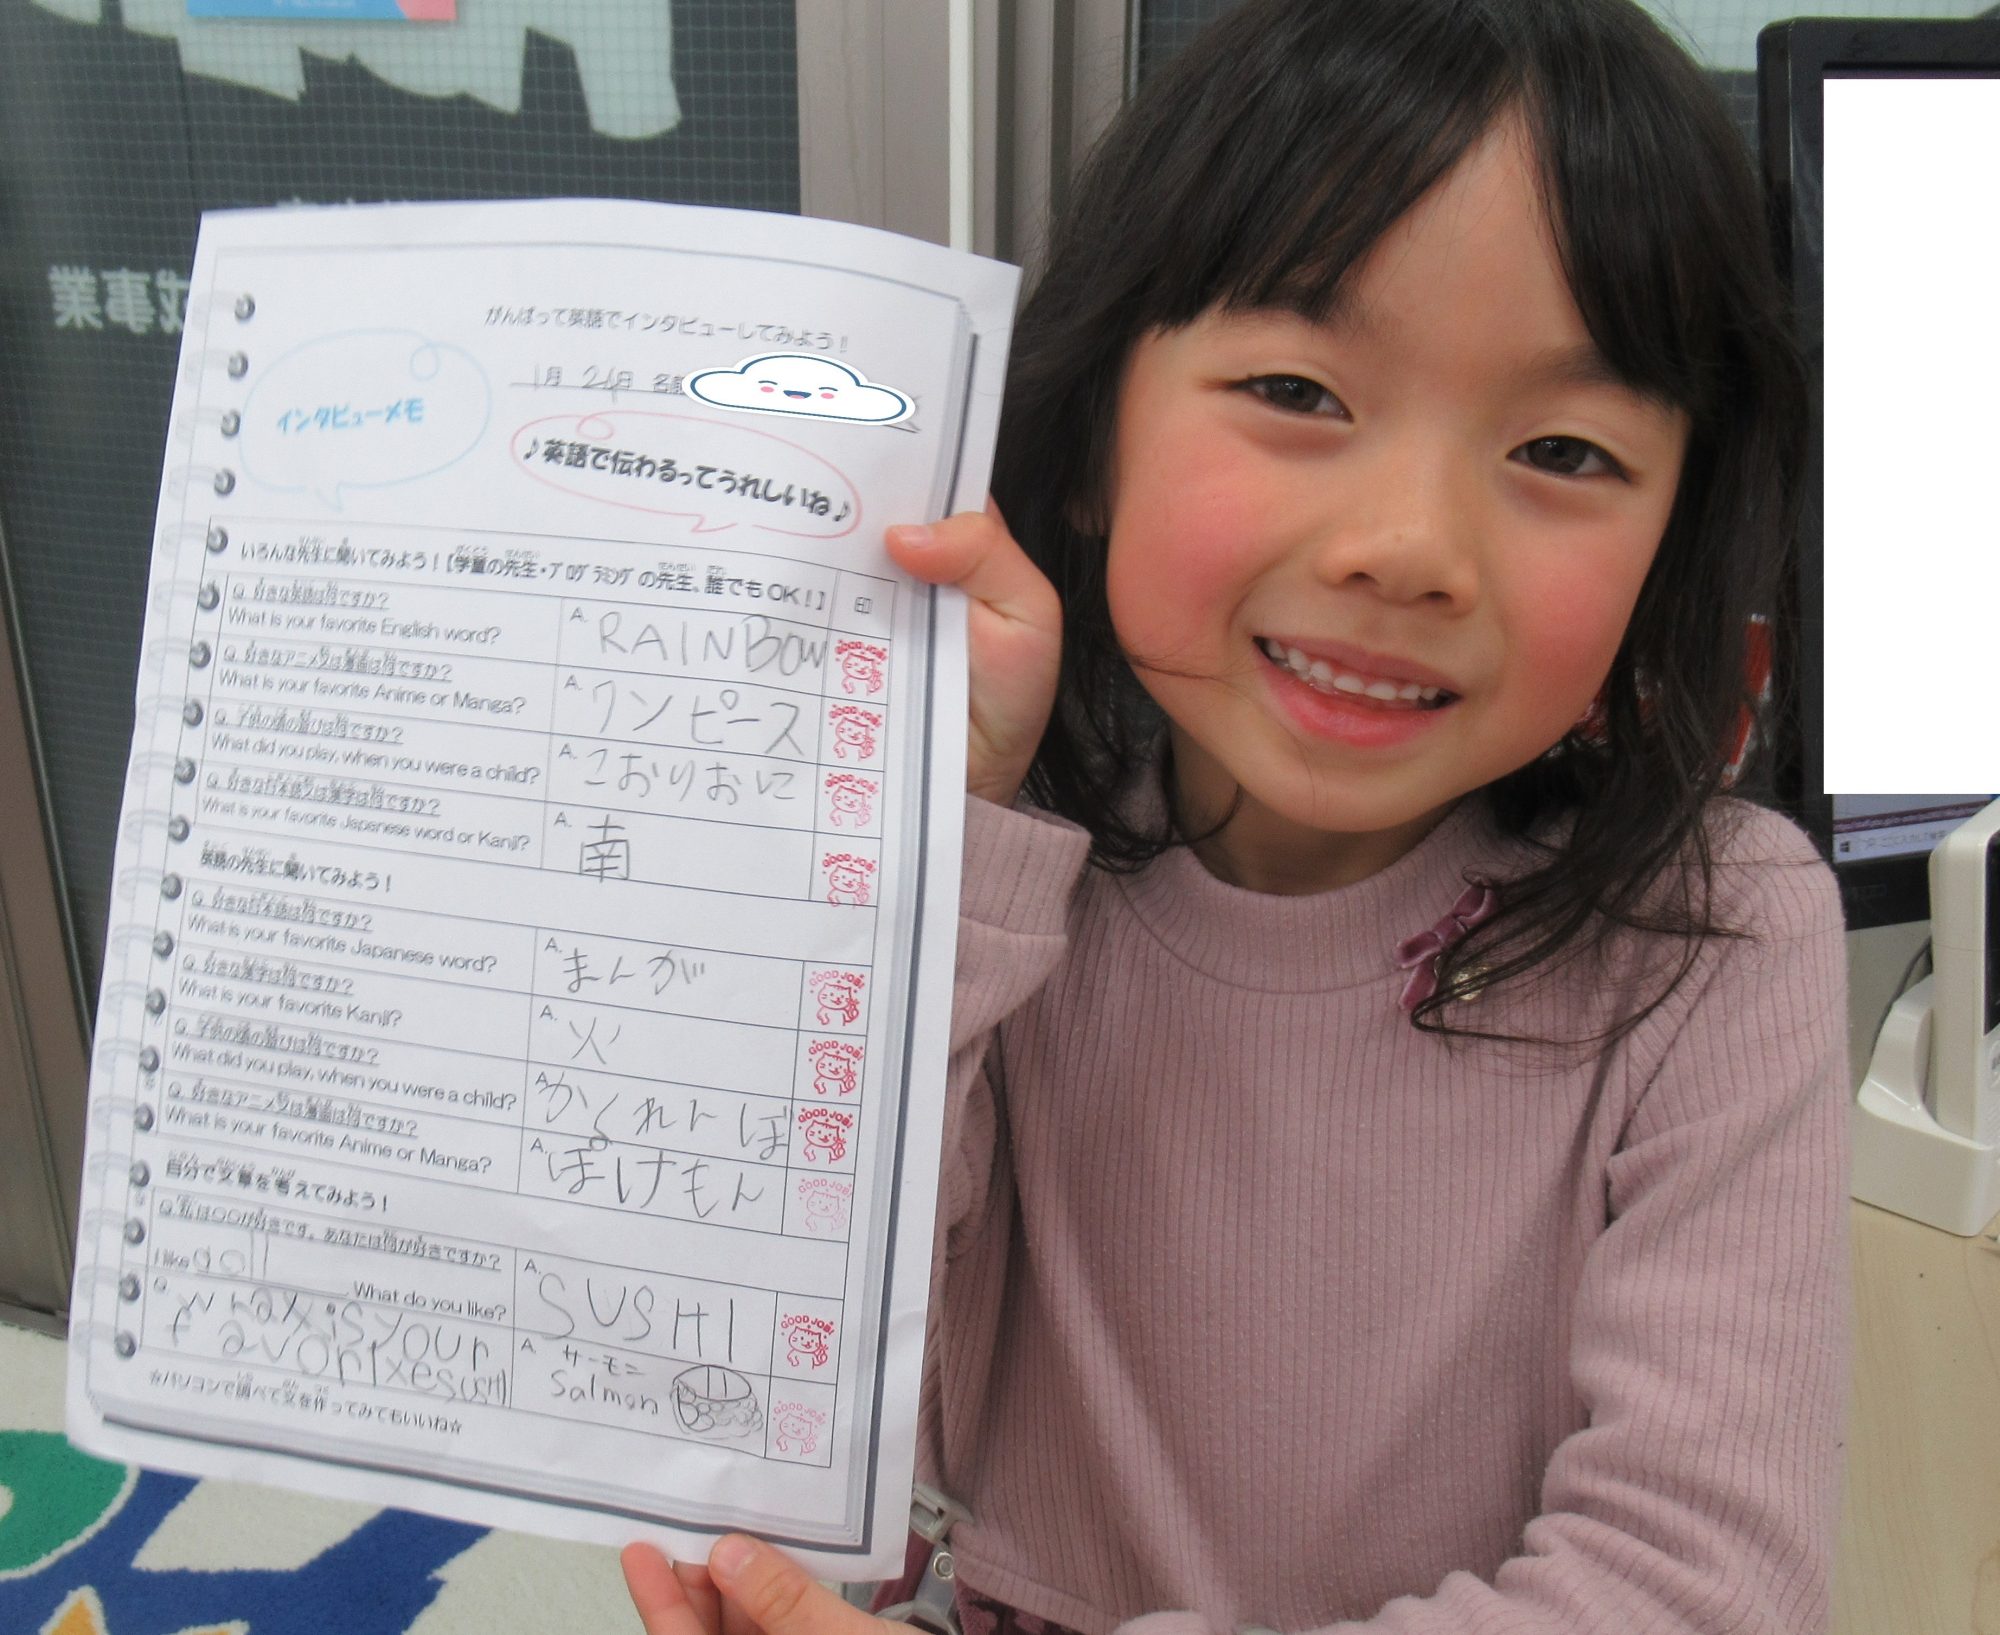 がんばって英語でインタビューしてみよう！
1月 24日 名前
インタビューメモ
♪英語で伝わるってうれしいね♪
いろんな先生に聞いてみよう！【学童の先生・プログラミングの先生、誰でもOK！】 印
Q. 好きな英語は何ですか？
What is your favorite English word?
A. RAINBOW
GOOD JOB!
Q. 好きなアニメ又は漫画は何ですか？
What is your favorite Anime or Manga?
A. ワンピース
GOOD JOB!
Q. 子供の頃の遊びは何ですか？
What did you play, when you were a child?
A. こおりおに
GOOD JOB!
Q. 好きな日本語又は漢字は何ですか？
What is your favorite Japanese word or Kanji?
A. 南
GOOD JOB!
英語の先生に聞いてみよう！
Q. 好きな日本語は何ですか？
What is your favorite Japanese word?
A. まんが
GOOD JOB!
Q. 好きな漢字は何ですか？
What is your favorite Kanji?
A. 火
GOOD JOB!
Q. 子供の頃の遊びは何ですか？
What did you play, when you were a child?
A. かくれんぼ
GOOD JOB!
Q. 好きなアニメ又は漫画は何ですか？
What is your favorite Anime or Manga?
A. ぽけもん
GOOD JOB!
自分で文章を考えてみよう！
Q. 私は〇〇が好きです。あなたは何が好きですか？
I like doll What do you like?
A. SUSHI
GOOD JOB!
Q. wrax is your
favorixe SUSHI
A. サーモン
Salmon
GOOD JOB!
☆パソコンで調べて文を作ってみてもいいね☆
事業